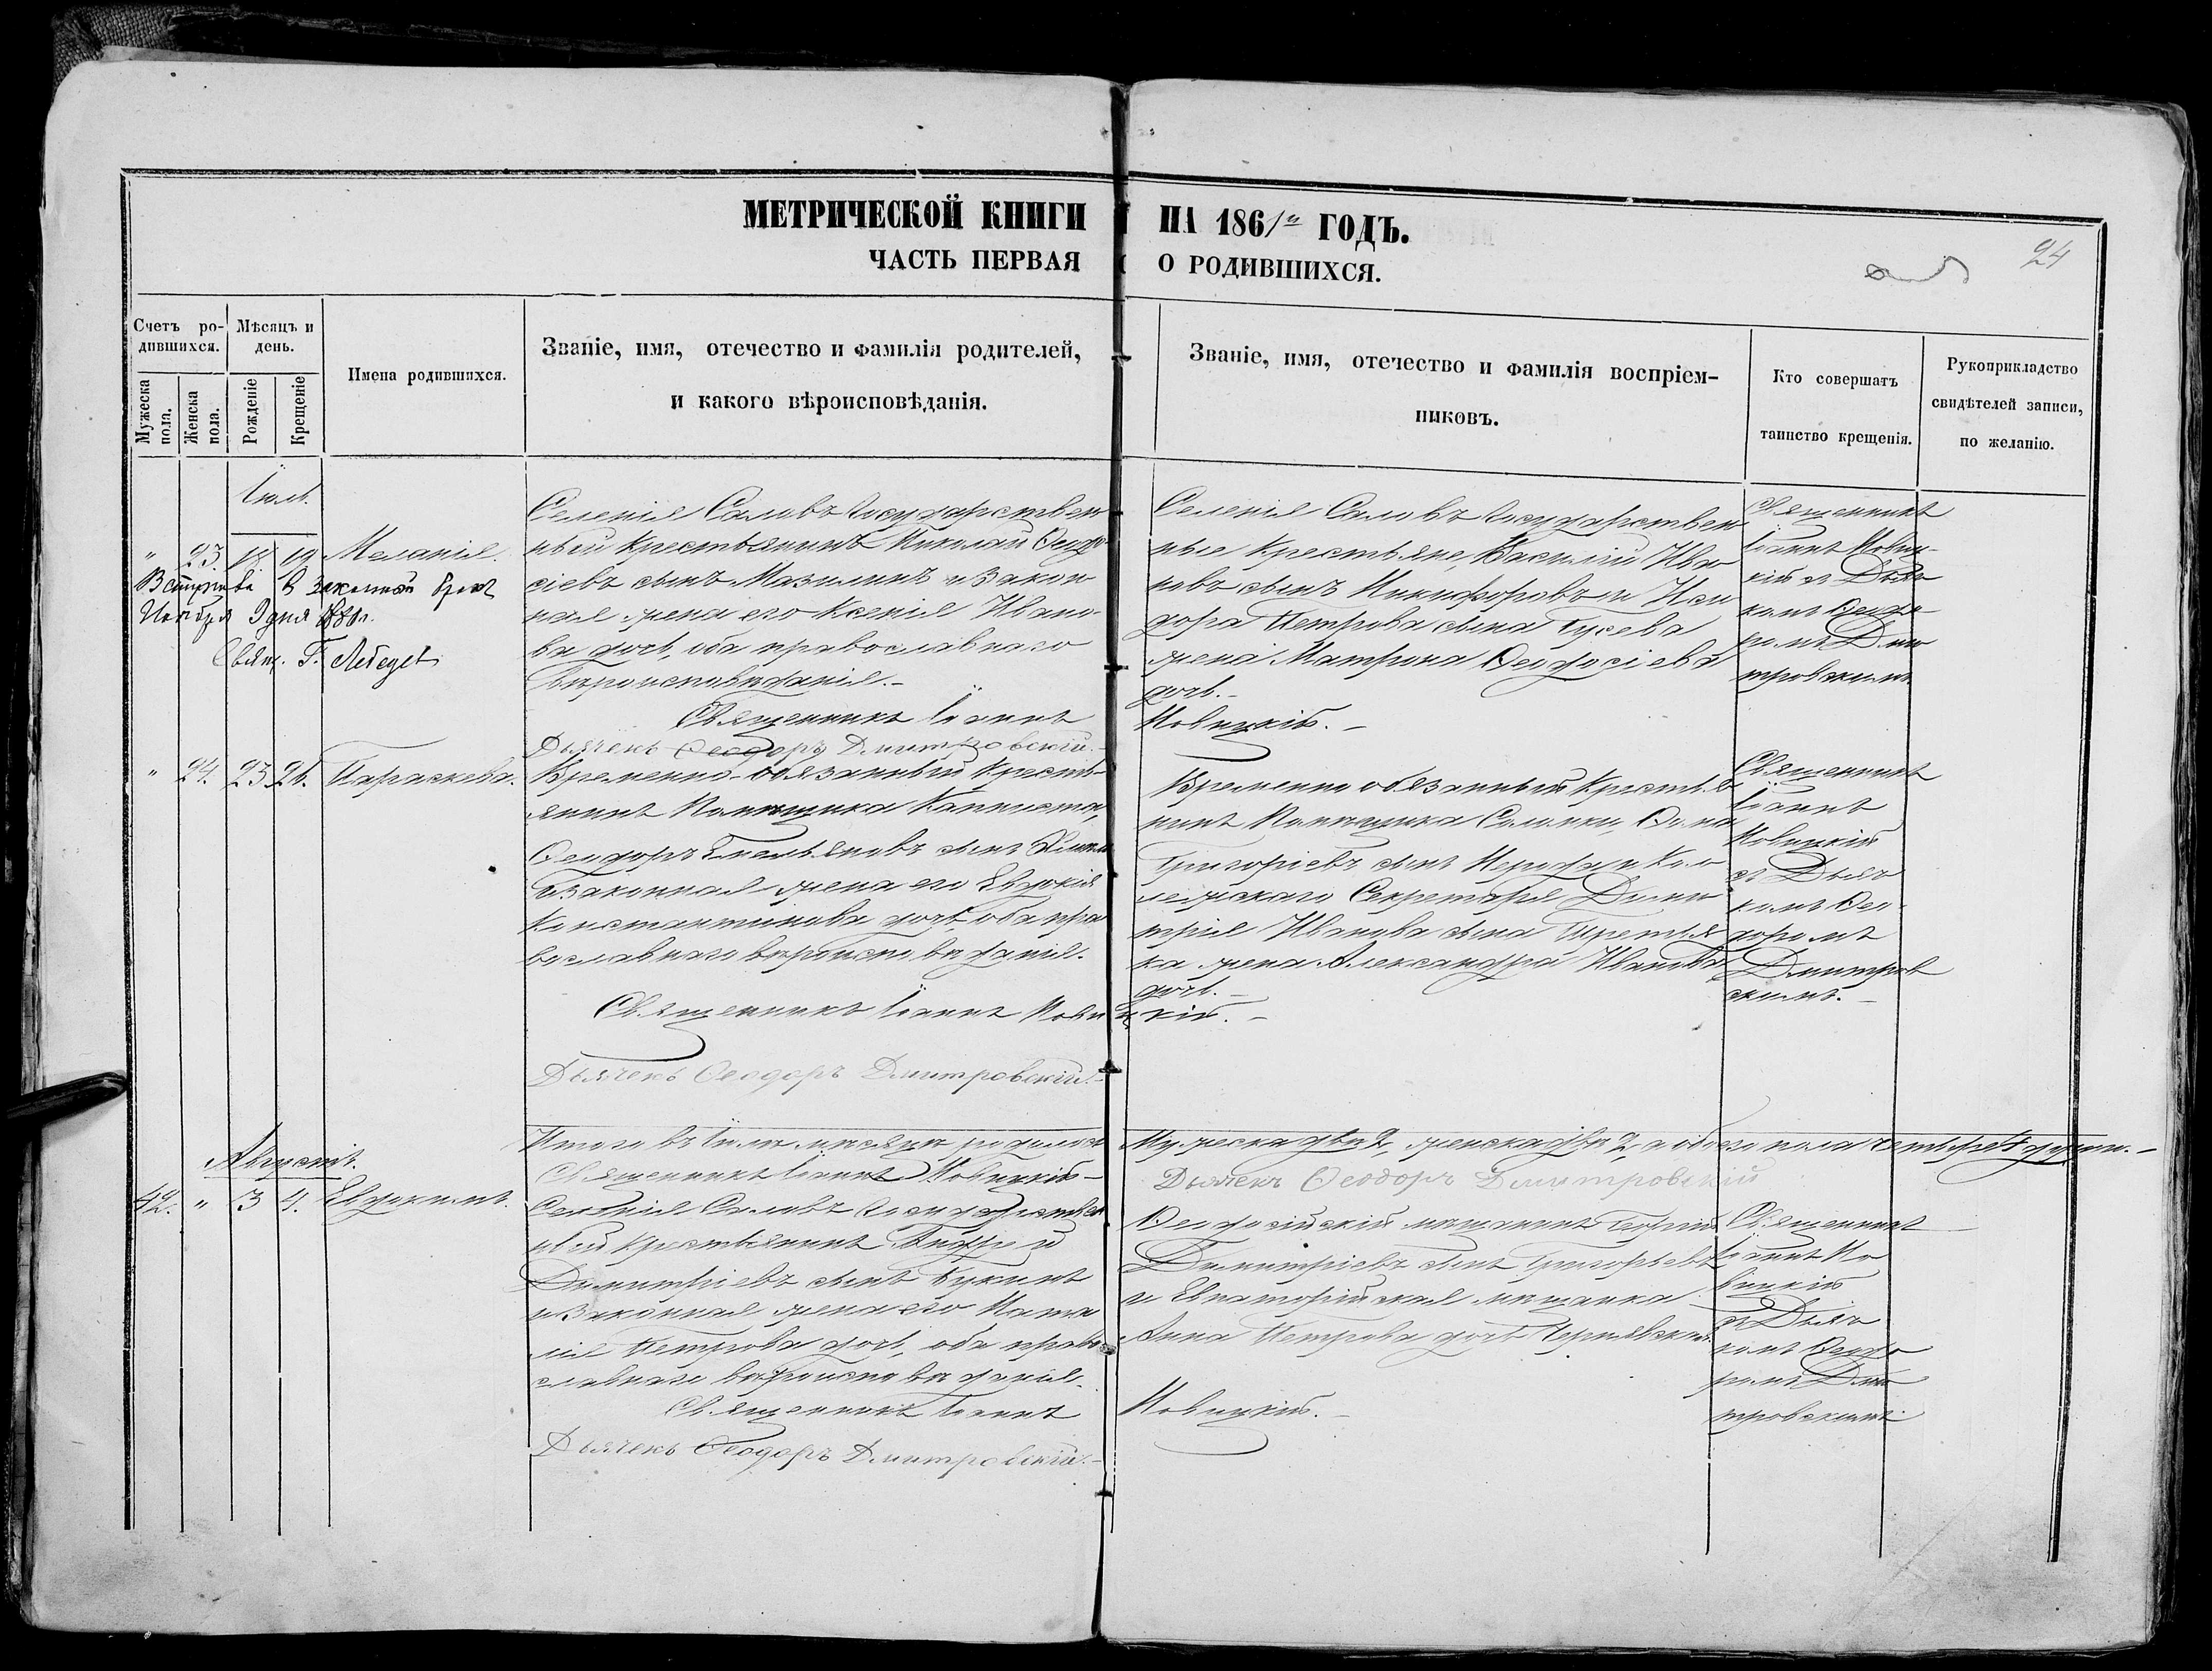 МЕТРИЧЕСКОЙ КНИГИ НА 1861й ГОДЪ.
ЧАСТЬ ПЕРВАЯ О РОДИВШИХСЯ.
24
Счетъ ро-
дившихся.
Мѣсяцъ и
день.
Мужеска пола.
Женска пола.
Рожденіе
Крещеніе
Имена родившихся.
Званіе, имя, отечество и фамилія родителей,
и какого вѣроисповѣданія.
Званіе, имя, отечество и фамилія воспріем-
никовъ.
Кто совершатъ
таинство крещенія.
Рукоприкладство
свидѣтелей записи,
по желанію.
Іюль.
" 23. 18 19 Меланія.
Вступила въ законный бракъ
Ноября 9 дня 1881г.
Свящ. Г. Лебедев
Селенія Салывъ Государствен
ный Крестьянинъ Николай Ѳеодо
сіевъ сынъ Мазилинъ и Закон
ная жена его Ксенія Ивано
ва дочь, оба православнаго
Вѣроисповѣданія.-
Священникъ Іоаннъ
Дьячекъ Ѳеодоръ Дмитровскій.-
Селенія Салывъ Государствен
ные Крестьяне, Василій Ива
новъ сынъ Никифоровъ и Иси
дора Петрова сына Гусева
жена Матрона Ѳеодосіева
дочь.-
Новицкій.-
Священникъ
Іоаннъ Новиц-
кій съ Дьяч
комъ Ѳеодо
ромъ Дми
тровскимъ.
" 24. 23 26. Параскева.
Временно-обязанный Кресть-
янинъ Помѣщика Капниста,
Ѳеодоръ Емельяновъ сынъ
и законная жена его Евдокія
Константинова дочь, оба пра
вославнаго вѣроисповѣданія.
Священникъ Іоаннъ Новицкій.-
Дьячекъ Ѳеодоръ Дмитровскій.-
Временно обязанный Крестья
нинъ Помѣщика Ѳома
Григоріевъ сынъ и Кол
лежскаго Секретаря Дими
трія Иванова сына Третья
ка жена Александра Иванова
дочь.-
Священникъ
Іоаннъ
Новицкій
съ Дьяч
комъ Ѳео
доромъ
Дмитров
скимъ.-
Итого въ Іюлѣ мѣсяцѣ родилось Мужеска два 2, женска двѣ 2, а обоего пола четыре 4 души.-
Священникъ Іоаннъ Новицкій-
Дьячекъ Ѳеодоръ Дмитровскій
Августъ.
42. " 3 4. Евдокимъ.
Селенія Салывъ Государствен
ный Крестьянинъ Андрей
Димитріевъ сынъ Кукинъ
и Законная жена его Ната
лія Петрова дочь, оба право
славнаго вѣроисповѣданія.
Священникъ Іоаннъ
Дьячекъ Ѳеодоръ Дмитровскій.-
Ѳеодосійскій мѣщанинъ Георгій
Димитріевъ сынъ Григорьевъ
и Евпаторійская мѣщанка
Анна Петрова дочь
Новицкій.-
Священникъ
Іоаннъ Но
вицкій
съ Дьяч
комъ Ѳеодо
ромъ Дми
тровскимъ.